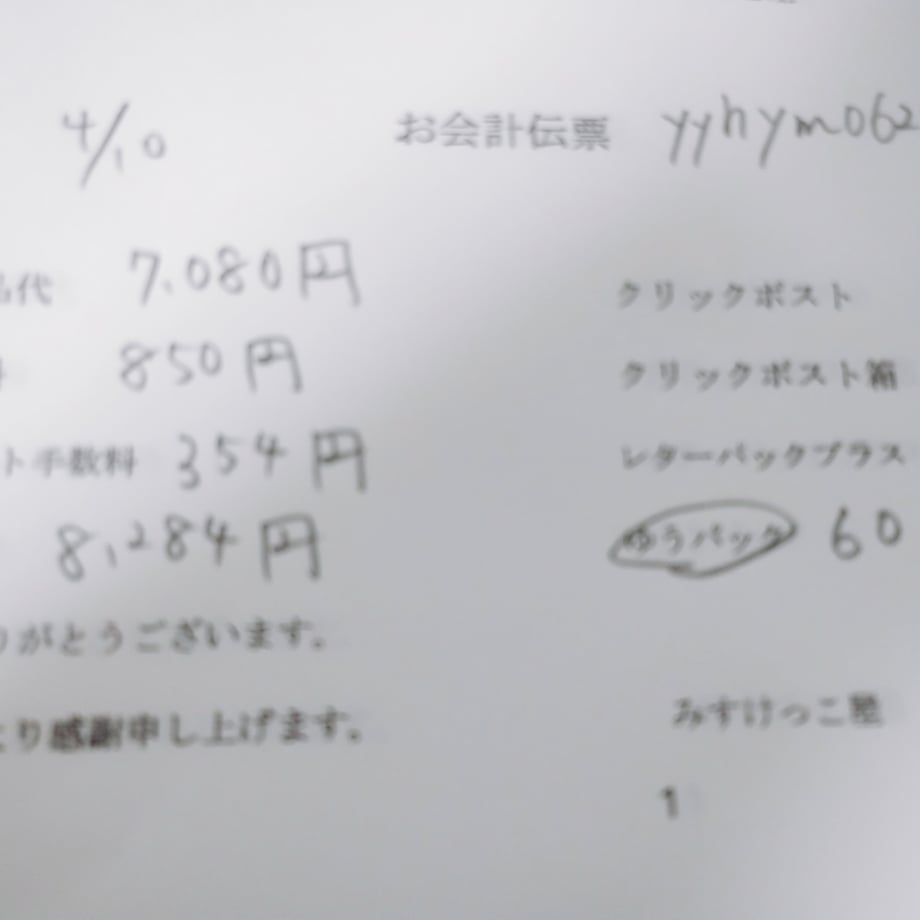 4/10 お会計伝票 yyhymo62
品代 7,080円 クリックポスト
850円 クリックポスト箱
ト手数料 354円 レターパックプラス
8,284円 ゆうパック 60
りがとうございます。
より感謝申し上げます。 みすけっこ塾
1